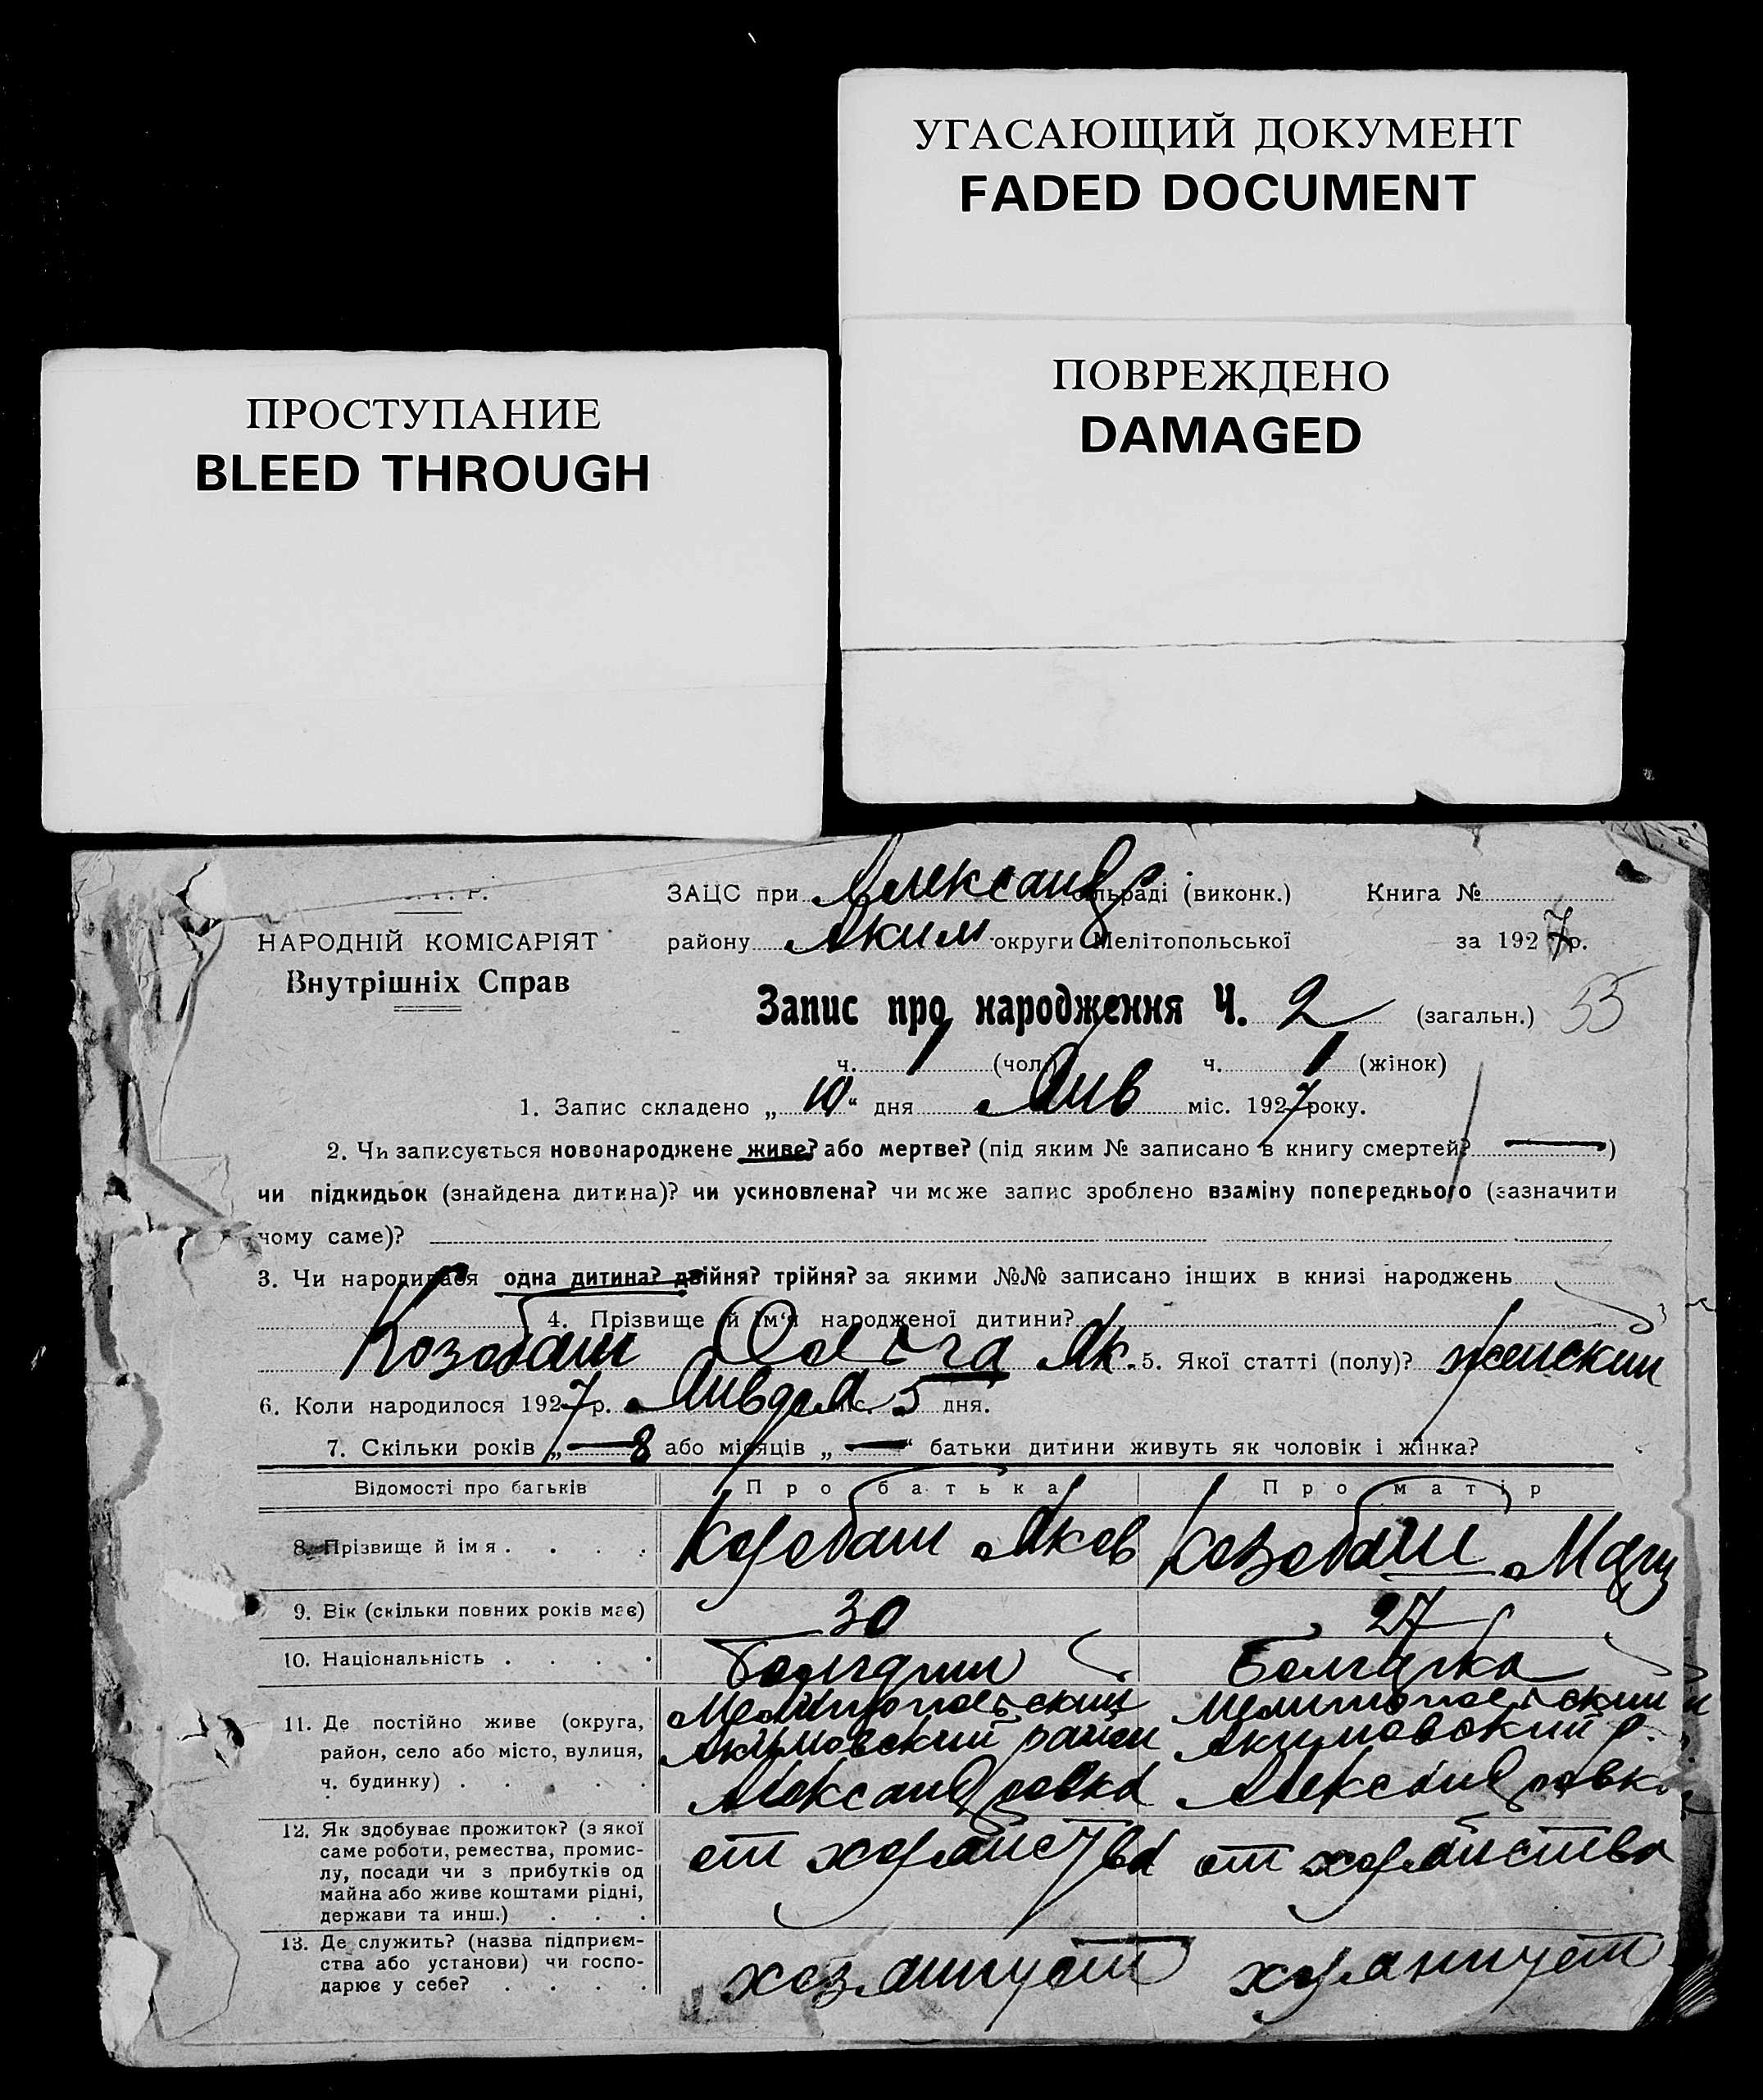 УГАСАЮЩИЙ ДОКУМЕНТ
FADED DOCUMENT
ПОВРЕЖДЕНО
DAMAGED
ПРОСТУПАНИЕ
BLEED THROUGH
ЗАЦС при Александр сільраді (виконк.) Книга №
НАРОДНІЙ КОМІСАРІЯТ
Внутрішніх Справ
району Аким округи Мелітопольської за 1927 р.
Запис про народження Ч. 2 (загальн.) 55
ч. 1 (чол.) ч. 1 (жінок)
1. Запис складено „10“ дня Янв міс. 1927 року.
2. Чи записується новонароджене живе? або мертве? (під яким № записано в книгу смертей? —)
чи підкидьок (знайдена дитина)? чи усиновлена? чи може запис зроблено взаміну попереднього (зазначити
чому саме)?
3. Чи народилася одна дитина? двійня? трійня? за якими №№ записано інших в книзі народжень
4. Прізвище й ім'я народженої дитини?
Козобаш Ольга Як. 5. Якої статті (полу)? женский
6. Коли народилося 1927 р. Января міс. 5 дня.
7. Скільки років „— 8 або місяців „—“ батьки дитини живуть як чоловік і жінка?
Відомості про батьків Про батька Про матір
8. Прізвище й імя . . . . Козобаш Яков Козобаш Мария
9. Вік (скільки повних років має) 30 27
10. Національність . . . . Болгарин Болгарка
11. Де постійно живе (округа,
район, село або місто, вулиця,
ч. будинку) . . . .
Мелитопольский Мелитопольский
Акимовский район Акимовский р.
Александровка Александровка
12. Як здобуває прожиток? (з якої
саме роботи, ремества, промис-
лу, посади чи з прибутків од
майна або живе коштами рідні,
держави та инш.) . . .
от хозяйства от хозяйства
13. Де служить? (назва підприєм-
ства або установи) чи госпо-
дарює у себе? . . . .
хозяинует хозяинует